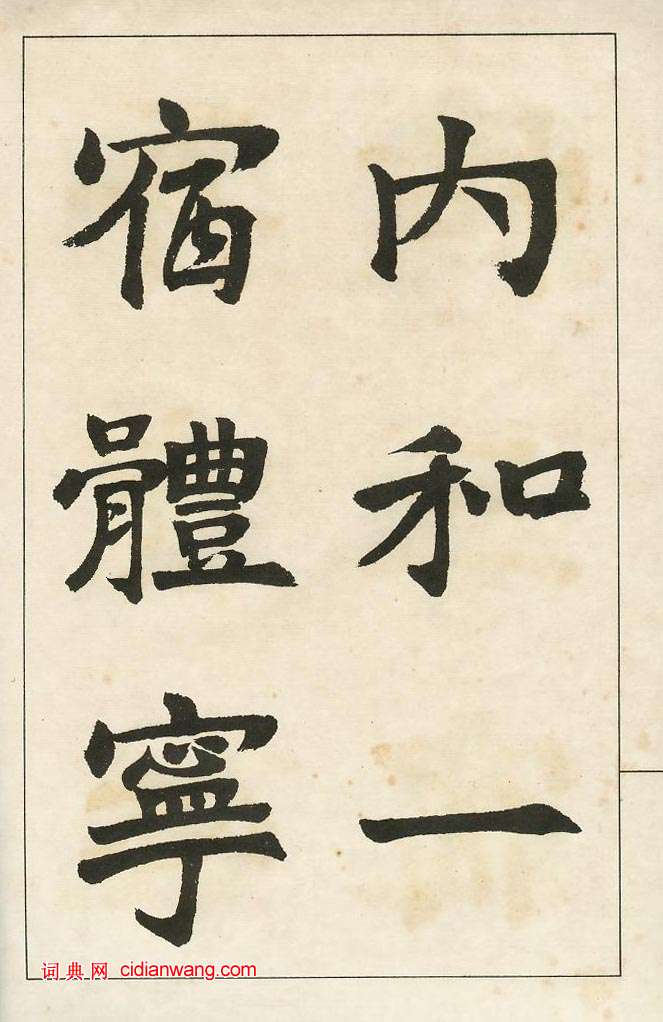 内和一
宿體寧
词典网 cidianwang.com